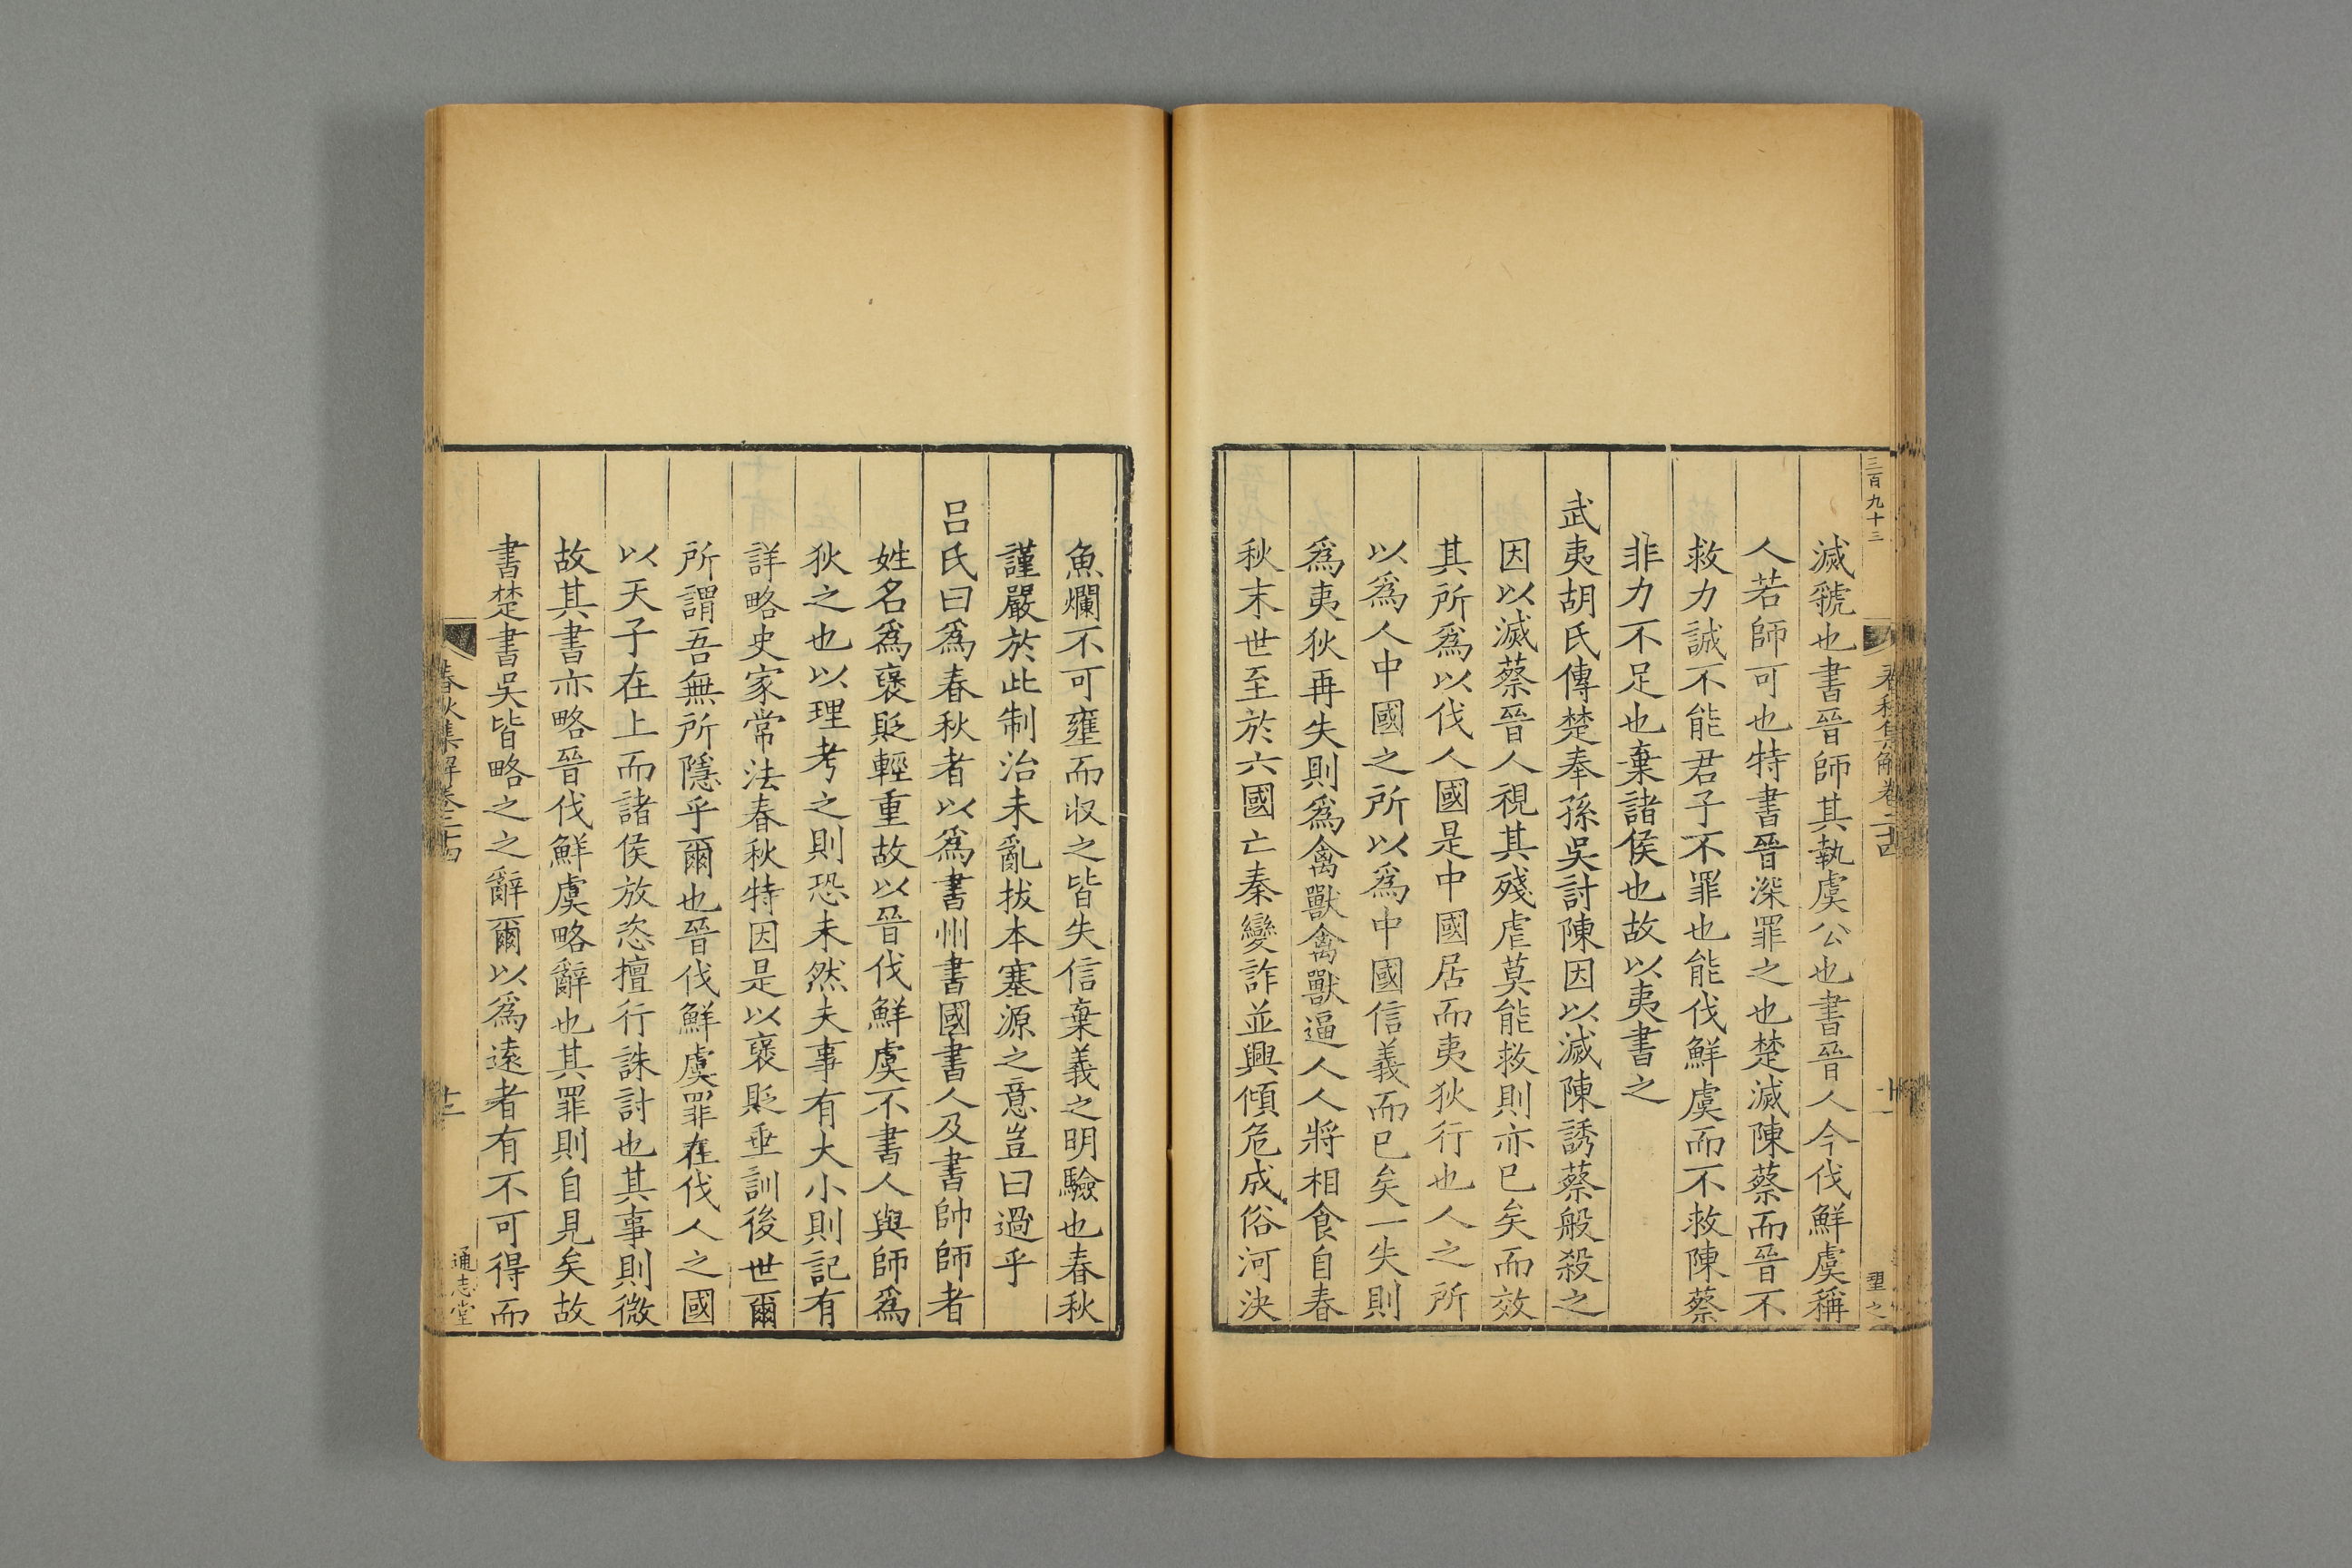 三百九十三
春秋集解卷二十四
十一
理之
滅虢也書晉師其執虞公也書晉人今伐鮮虞稱
人若師可也特書晉深罪之也楚滅陳蔡而晉不
救力誠不能君子不罪也能伐鮮虞而不救陳蔡
非力不足也棄諸侯也故以夷書之
武夷胡氏傳楚奉孫吳討陳因以滅陳誘蔡般殺之
因以滅蔡晉人視其殘虐莫能救則亦已矣而效
其所爲以伐人國是中國居而夷狄行也人之所
以爲人中國之所以爲中國信義而已矣一失則
爲夷狄再失則爲禽獸禽獸逼人人將相食自春
秋末世至於六國亡秦變詐並興傾危成俗河決
魚爛不可壅而收之皆失信棄義之明驗也春秋
謹嚴於此制治未亂拔本塞源之意豈曰過乎
呂氏曰爲春秋者以爲書州書國書人及書帥師者
姓名爲褒貶輕重故以晉伐鮮虞不書人與師爲
狄之也以理考之則恐未然夫事有大小則記有
詳略史家常法春秋特因是以褒貶垂訓後世爾
所謂吾無所隱乎爾也晉伐鮮虞罪在伐人之國
以天子在上而諸侯放恣擅行誅討也其事則微
故其書亦略晉伐鮮虞略辭也其罪則自見矣故
書楚書吳皆略之之辭爾以爲遠者有不可得而
春秋集解卷二十四
十二
通志堂